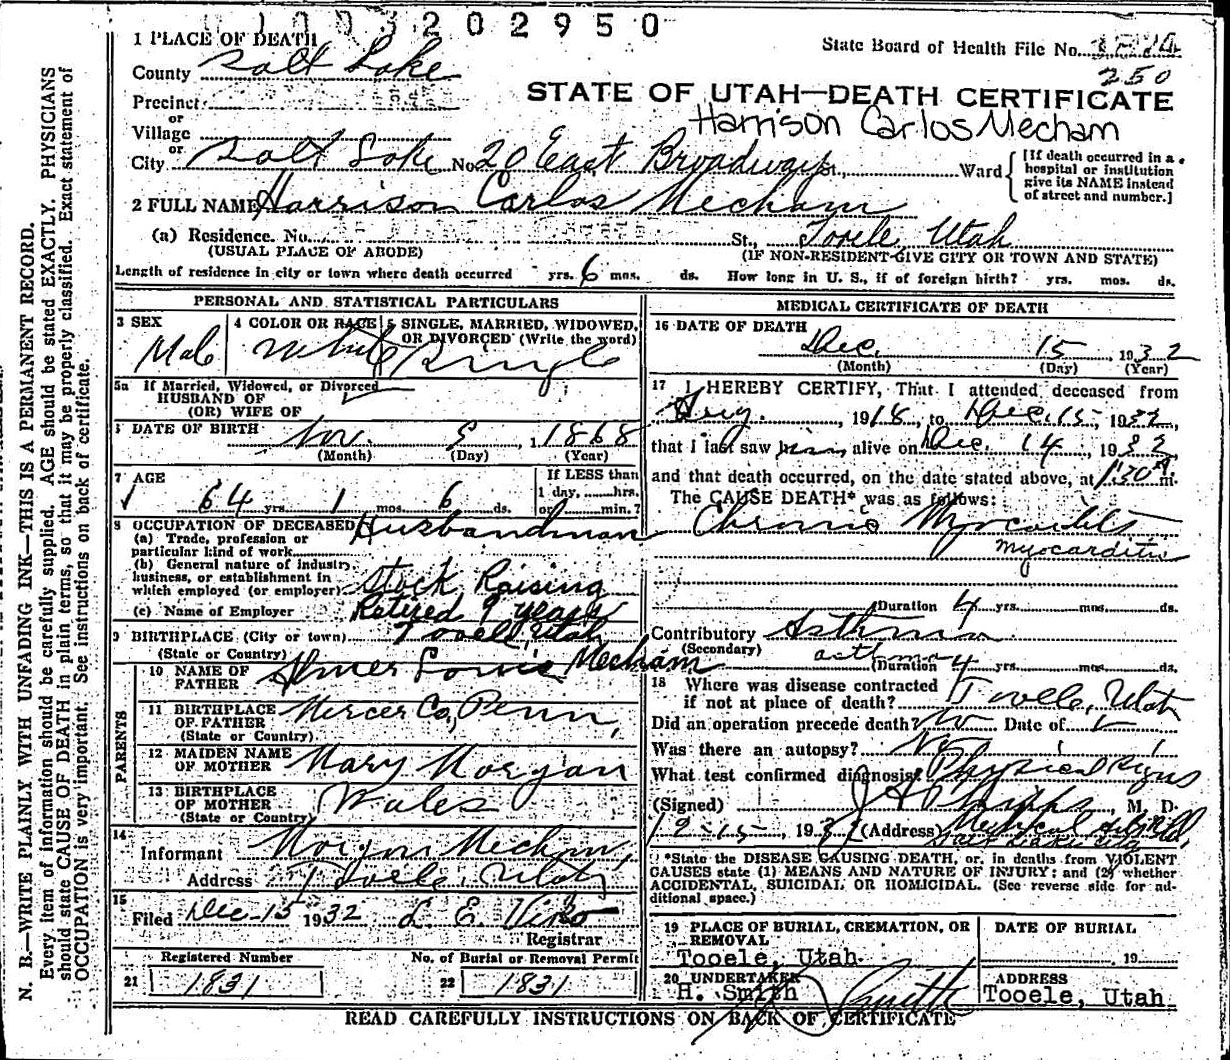 1003202950
State Board of Health File No.
250
1 PLACE OF DEATH
County Salt Lake
Precinct
or
Village
or
City Salt Lake No. 20 East Broadway St., Ward
[If death occurred in a hospital or institution give its NAME instead of street and number.]
STATE OF UTAH—DEATH CERTIFICATE
Harrison Carlos Mecham
2 FULL NAME Harrison Carlos Mecham
(a) Residence. No. St., Tooele, Utah
(USUAL PLACE OF ABODE) (IF NON-RESIDENT GIVE CITY OR TOWN AND STATE)
Length of residence in city or town where death occurred yrs. 6 mos. ds. How long in U. S., if of foreign birth? yrs. mos. ds.
PERSONAL AND STATISTICAL PARTICULARS
3 SEX
Male
4 COLOR OR RACE
White
5 SINGLE, MARRIED, WIDOWED, OR DIVORCED (Write the word)
Single
5a If Married, Widowed, or Divorced
HUSBAND OF
(OR) WIFE OF
6 DATE OF BIRTH Nov. 9 1868
(Month) (Day) (Year)
7 AGE
64 yrs. 1 mos. 6 ds.
If LESS than
1 day, hrs.
or min.?
8 OCCUPATION OF DECEASED Husbandman
(a) Trade, profession or
particular kind of work
(b) General nature of industry,
business, or establishment in
which employed (or employer) Stock Raising
(c) Name of Employer Retired 9 years
9 BIRTHPLACE (City or town) Tooele, Utah
(State or Country)
PARENTS
10 NAME OF FATHER Elmer Louis Mecham
11 BIRTHPLACE OF FATHER Mercer Co, Penn,
(State or Country)
12 MAIDEN NAME OF MOTHER Mary Morgan
13 BIRTHPLACE OF MOTHER Wales
(State or Country)
14
Informant Morgan Mecham,
Address Tooele, Utah
15
Filed Dec 15 1932 L. E.
Registrar
Registered Number
21 1831
No. of Burial or Removal Permit
22 1831
MEDICAL CERTIFICATE OF DEATH
16 DATE OF DEATH
Dec. 15, 1932
(Month) (Day) (Year)
17 I HEREBY CERTIFY, That I attended deceased from
Aug. 1918, to Dec. 15 1932,
that I last saw him alive on Dec. 14, 1932
and that death occurred, on the date stated above, at 1:30 A m.
The CAUSE DEATH* was as follows:
Chronic Myocarditis
myocarditis
Duration 4 yrs. mos. ds.
Contributory Asthma
(Secondary) asthma
(Duration 4 yrs. mos. ds.
18 Where was disease contracted
if not at place of death? Tooele, Utah
Did an operation precede death? No Date of
Was there an autopsy? No
What test confirmed diagnosis? Physical Signs
(Signed) J A Phipps, M. D.
12-15-, 1932 (Address) Medical Arts Bld,
Salt Lake City
*State the DISEASE CAUSING DEATH, or, in deaths from VIOLENT
CAUSES state (1) MEANS AND NATURE OF INJURY; and (2) whether
ACCIDENTAL, SUICIDAL OR HOMICIDAL. (See reverse side for ad-
ditional space.)
19 PLACE OF BURIAL, CREMATION, OR
REMOVAL
Tooele, Utah.
DATE OF BURIAL
, 19
20 UNDERTAKER
H. Smith Smith
ADDRESS
Tooele, Utah
READ CAREFULLY INSTRUCTIONS ON BACK OF CERTIFICATE
N. B.—WRITE PLAINLY WITH UNFADING INK—THIS IS A PERMANENT RECORD.
Every item of information should be carefully supplied. AGE should be stated EXACTLY. PHYSICIANS
should state CAUSE OF DEATH in plain terms, so that it may be properly classified. Exact statement of
OCCUPATION is very important. See instructions on back of certificate.